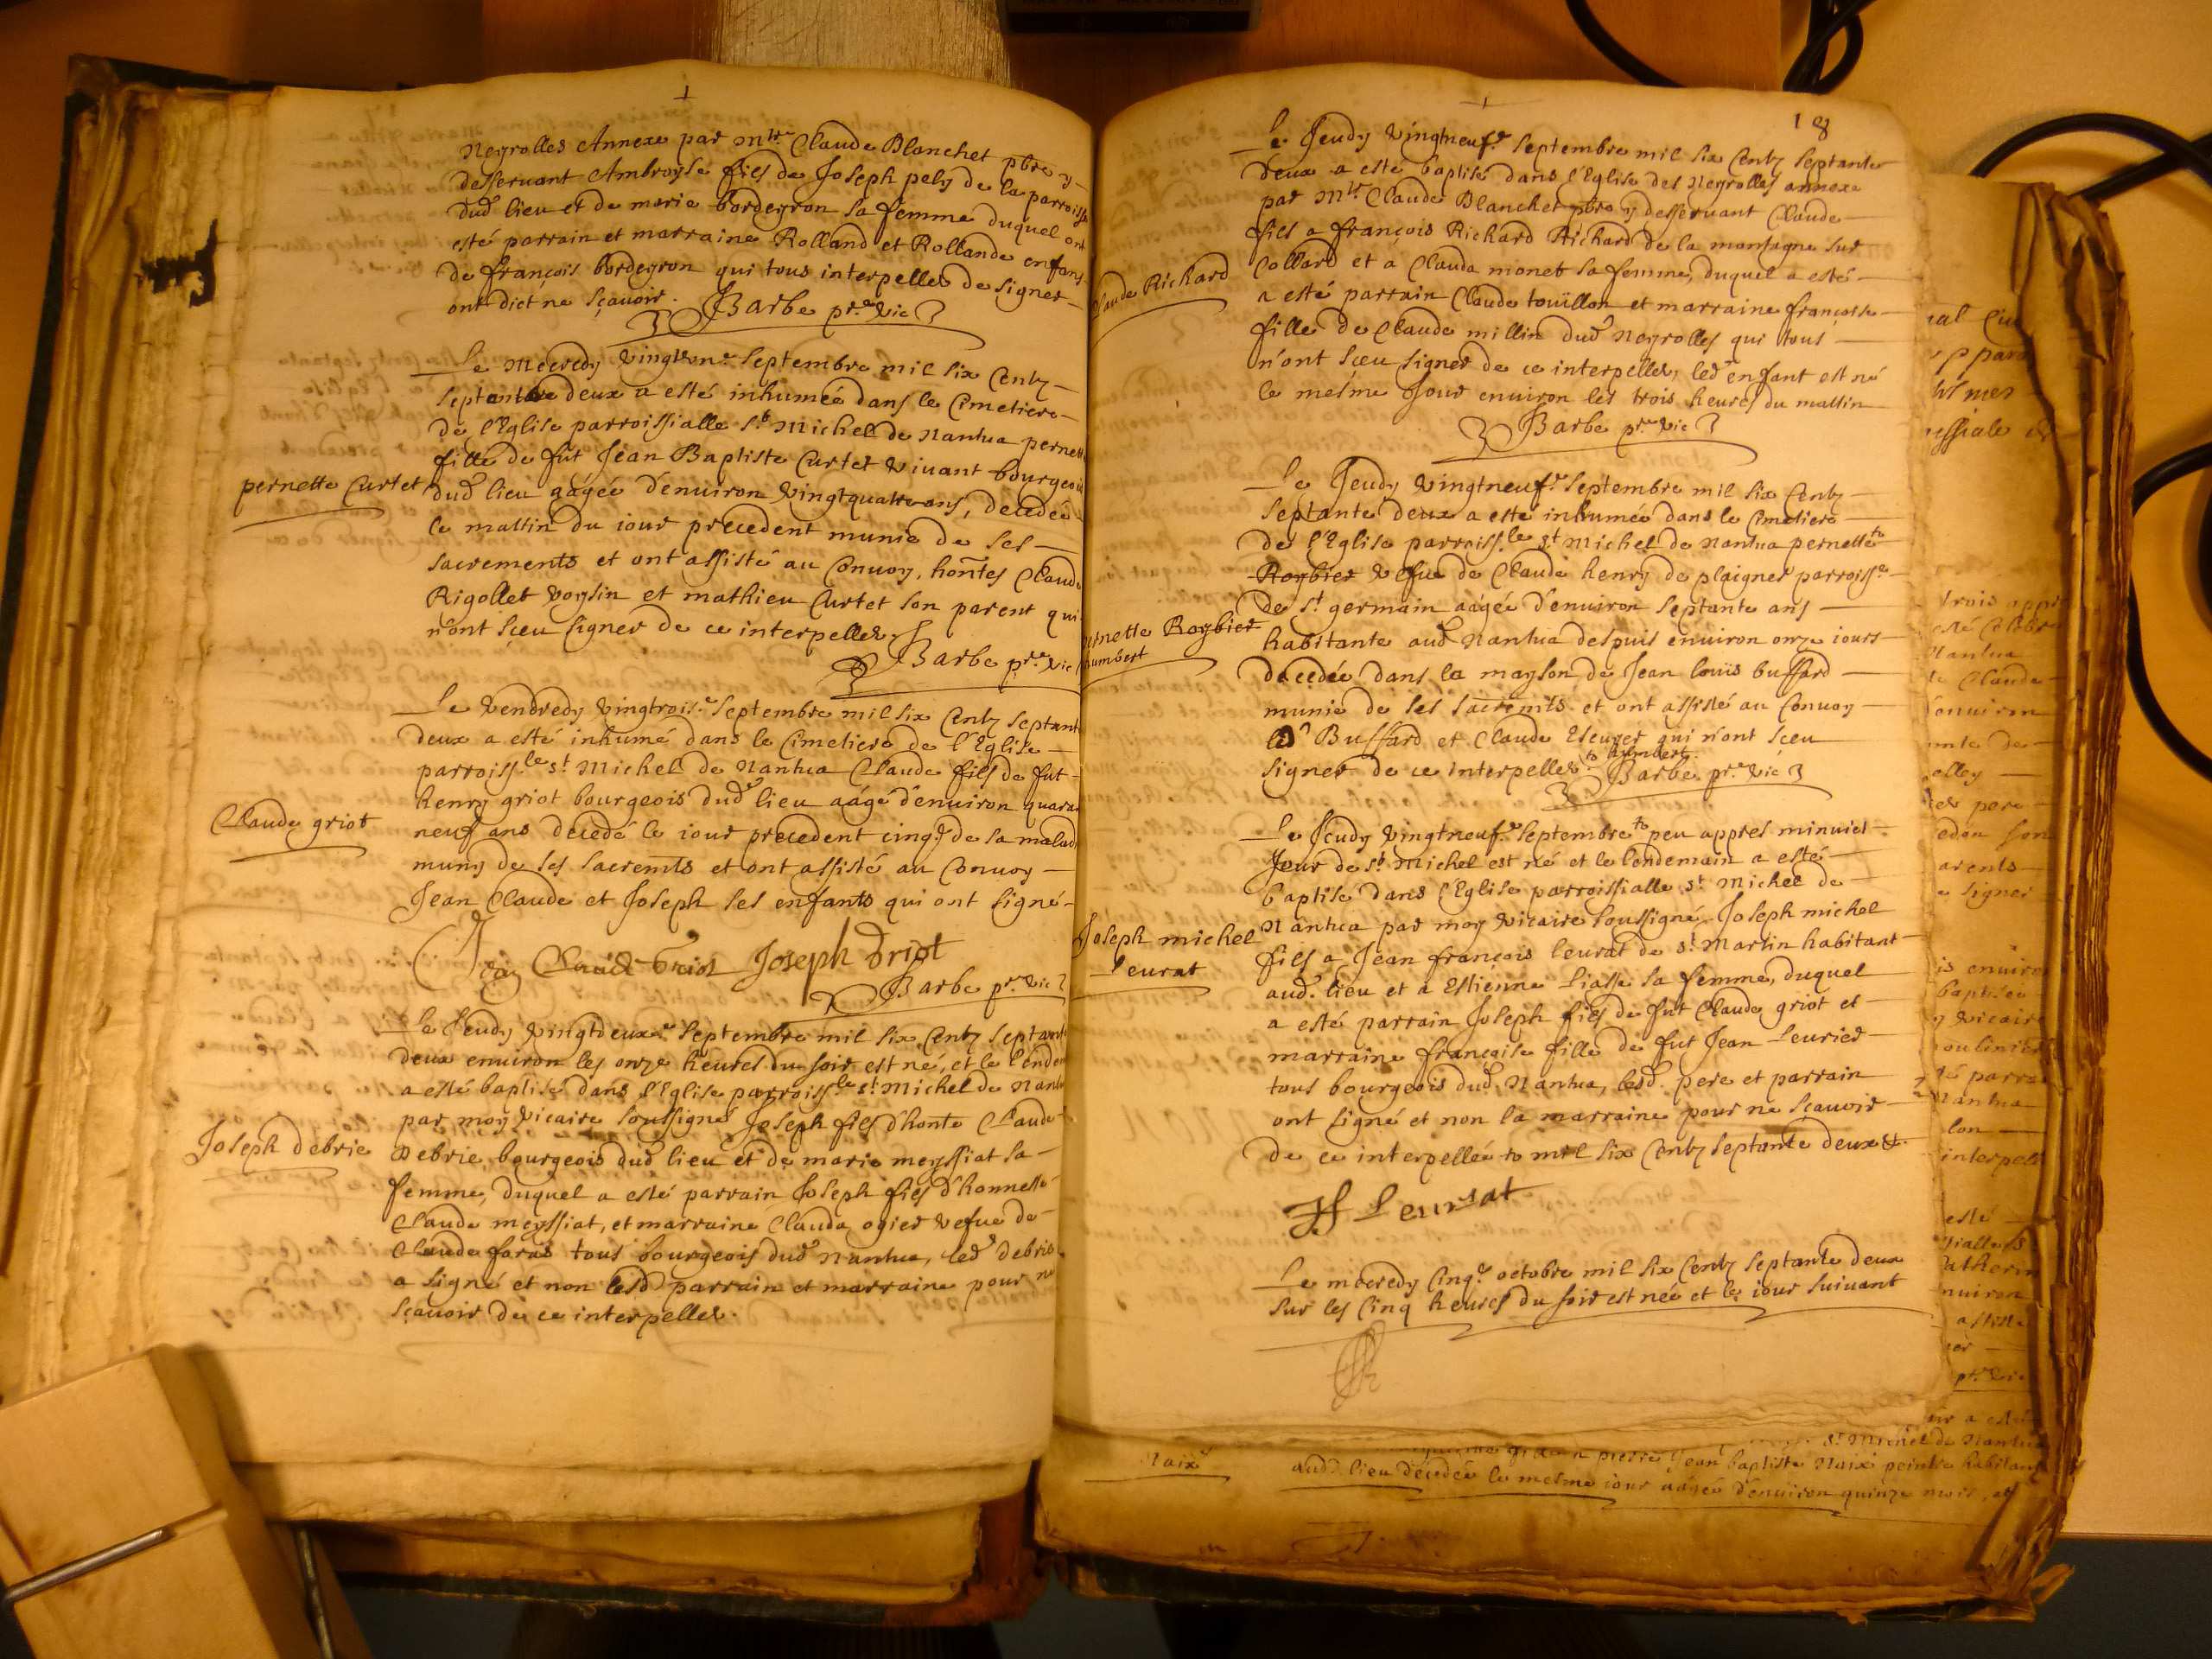 Neyrolles Annexe par mre Claude Blanchet pbre y
desservant Ambroyse fils de Joseph pely de la parroisse
dud lieu et de marie bordeyron sa femme duquel ont
esté parrain et marraine Rolland et Rollande enfans
de françois bordeyron qui tous interpelles de signer
ont dict ne sçavoir. Barbe pre vic
Le Mecredy vingtune septembre mil six centz
septante deux a esté inhumée dans le Cimetiere
de l'Eglise parroissialle st Michel de Nantua pernette
fille de fut Jean Baptiste Curtet vivant bourgeois
pernette Curtet
dud lieu aâgée d'environ vingtquatre ans, decedée
le mattin du iour precedent munie de ses
sacrements et ont assisté au Convoy, hontes Claude
Rigollet voysin et mathieu Curtet son parent qui
n'ont sçeu signer de ce interpelles
Barbe pre vic
Le Vendredy vingtrois.e septembre mil six centz septante
deux a esté inhumé dans le Cimetiere de l'Eglise
parroiss.le st Michel de Nantua Claude fils de fut
henry griot bourgeois dud lieu aâgé d'environ quarante
Claude griot
neuf ans decedé le iour precedent cinq.e de sa maladie
muny de ses sacremts et ont assisté au Convoy
Jean Claude et Joseph ses enfants qui ont signé
Jean Claude Griot Joseph Griot
Barbe pre vic
Le Jeudy vingtdeux.e septembre mil six centz septante
deux environ les onze heures du soir est né, et le lendem
a esté baptisé dans l'Eglise parroiss.le st Michel de Nantua
par moy vicaire soussigné Joseph fils d'honte Claude
Joseph debrie
Debrie bourgeois dud lieu et de marie meyssiat sa
femme, duquel a esté parrain Joseph fils d'honneste
Claude meyssiat, et marraine Clauda ogier vefue de
Claude foras tous bourgeois dud Nantua, led debrie
a signé et non lesd parrain et marraine pour ne
sçavoir de ce interpelles.
18
Le Jeudy vingtneuf.e septembre mil six centz septante
deux a esté baptisé dans l'Eglise des Neyrolles annexe
par mre Claude Blanchet pbre y desservant Claude
fils a françois Richard Richard de la montagne sur
Claude Richard
Collard et a Clauda monet sa femme, duquel a esté
a esté parrain Claude touïllon et marraine françoise
fille de Claude millin dud Neyrolles qui tous
n'ont sçeu signer de ce interpelles, led enfant est né
le mesme Jour environ les trois heures du mattin
Barbe pre vic
Le Jeudy vingtneuf.e septembre mil six centz
septante deux a esté inhumée dans le Cimetiere
de l'Eglise parroiss.le st Michel de Nantua pernette to
Roybier vefue de Claude henry de plaigner parroisse
de st germain aâgée d'environ septante ans
pernette Roybier
humbert
habitante aud Nantua despuis environ onze iours
decedée dans la mayson de Jean louïs buffard
munie de ses sacremts et ont assisté au Convoy
led Buffard et Claude qui n'ont sçeu
signer de ce interpelles to humbert. Barbe pre vic
Le Jeudy vingtneuf.e septembre to peu appres minuict
Jour de st Michel est né et le lendemain a esté
baptisé dans l'Eglise parroissialle st Michel de
Nantua par moy vicaire soussigné Joseph michel
Joseph michel
Leurat
fils a Jean françois leurat de st Martin habitant
aud. lieu et a Estienne Liasse sa femme, duquel
a esté parrain Joseph fils de fut Claude griot et
marraine françoise fille de fut Jean Leurier
tous bourgeois dud. Nantua, lesd. pere et parrain
ont signé et non la marraine pour ne sçavoir
de ce interpellée to mil six centz septante deux
Leurat
Le mecredy Cinq.e octobre mil six centz septante deux
sur les Cinq heures du soir est née et le iour suivant
Naix
pierre Jean baptiste Naix peintre habitant
aud. lieu decedée le mesme iour aâgée d'environ quinze mois, et